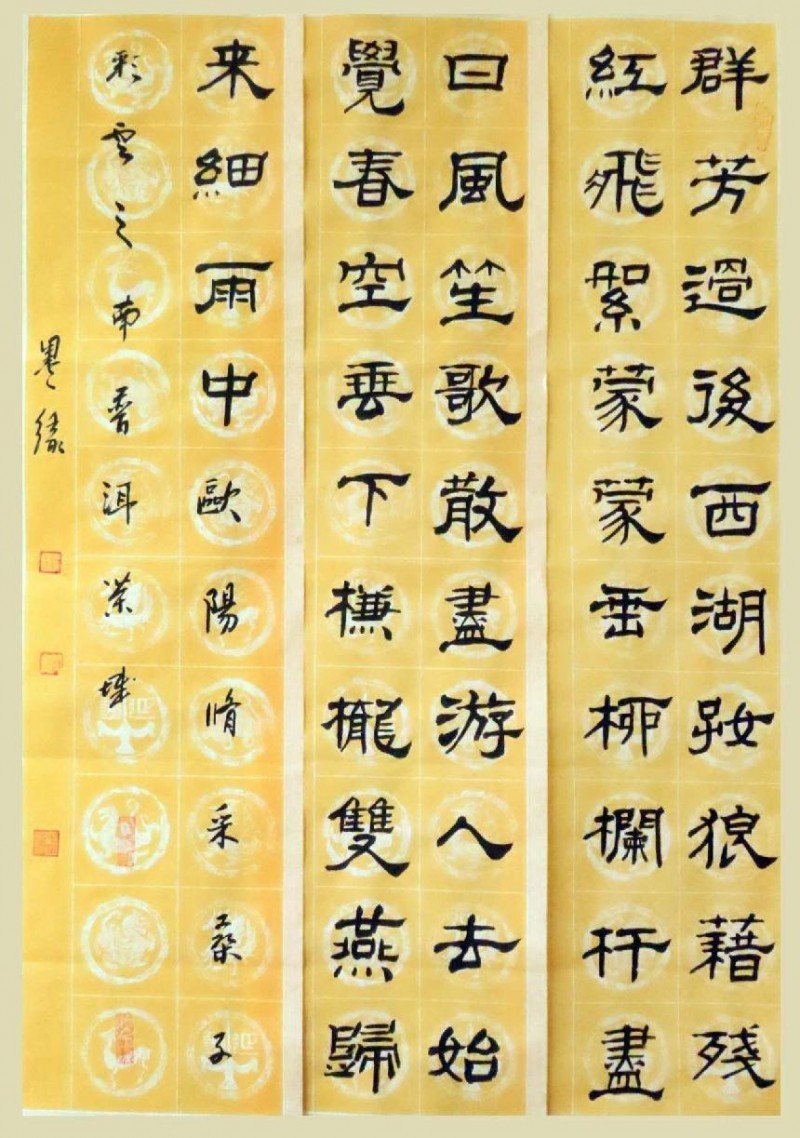 群芳過後西湖好狼藉殘
紅飛絮蒙蒙垂柳欄杆盡
日風笙歌散盡游人去始
覺春空垂下槏櫳雙燕歸
来細雨中歐陽脩采桑子
彩雲之南普洱茶城